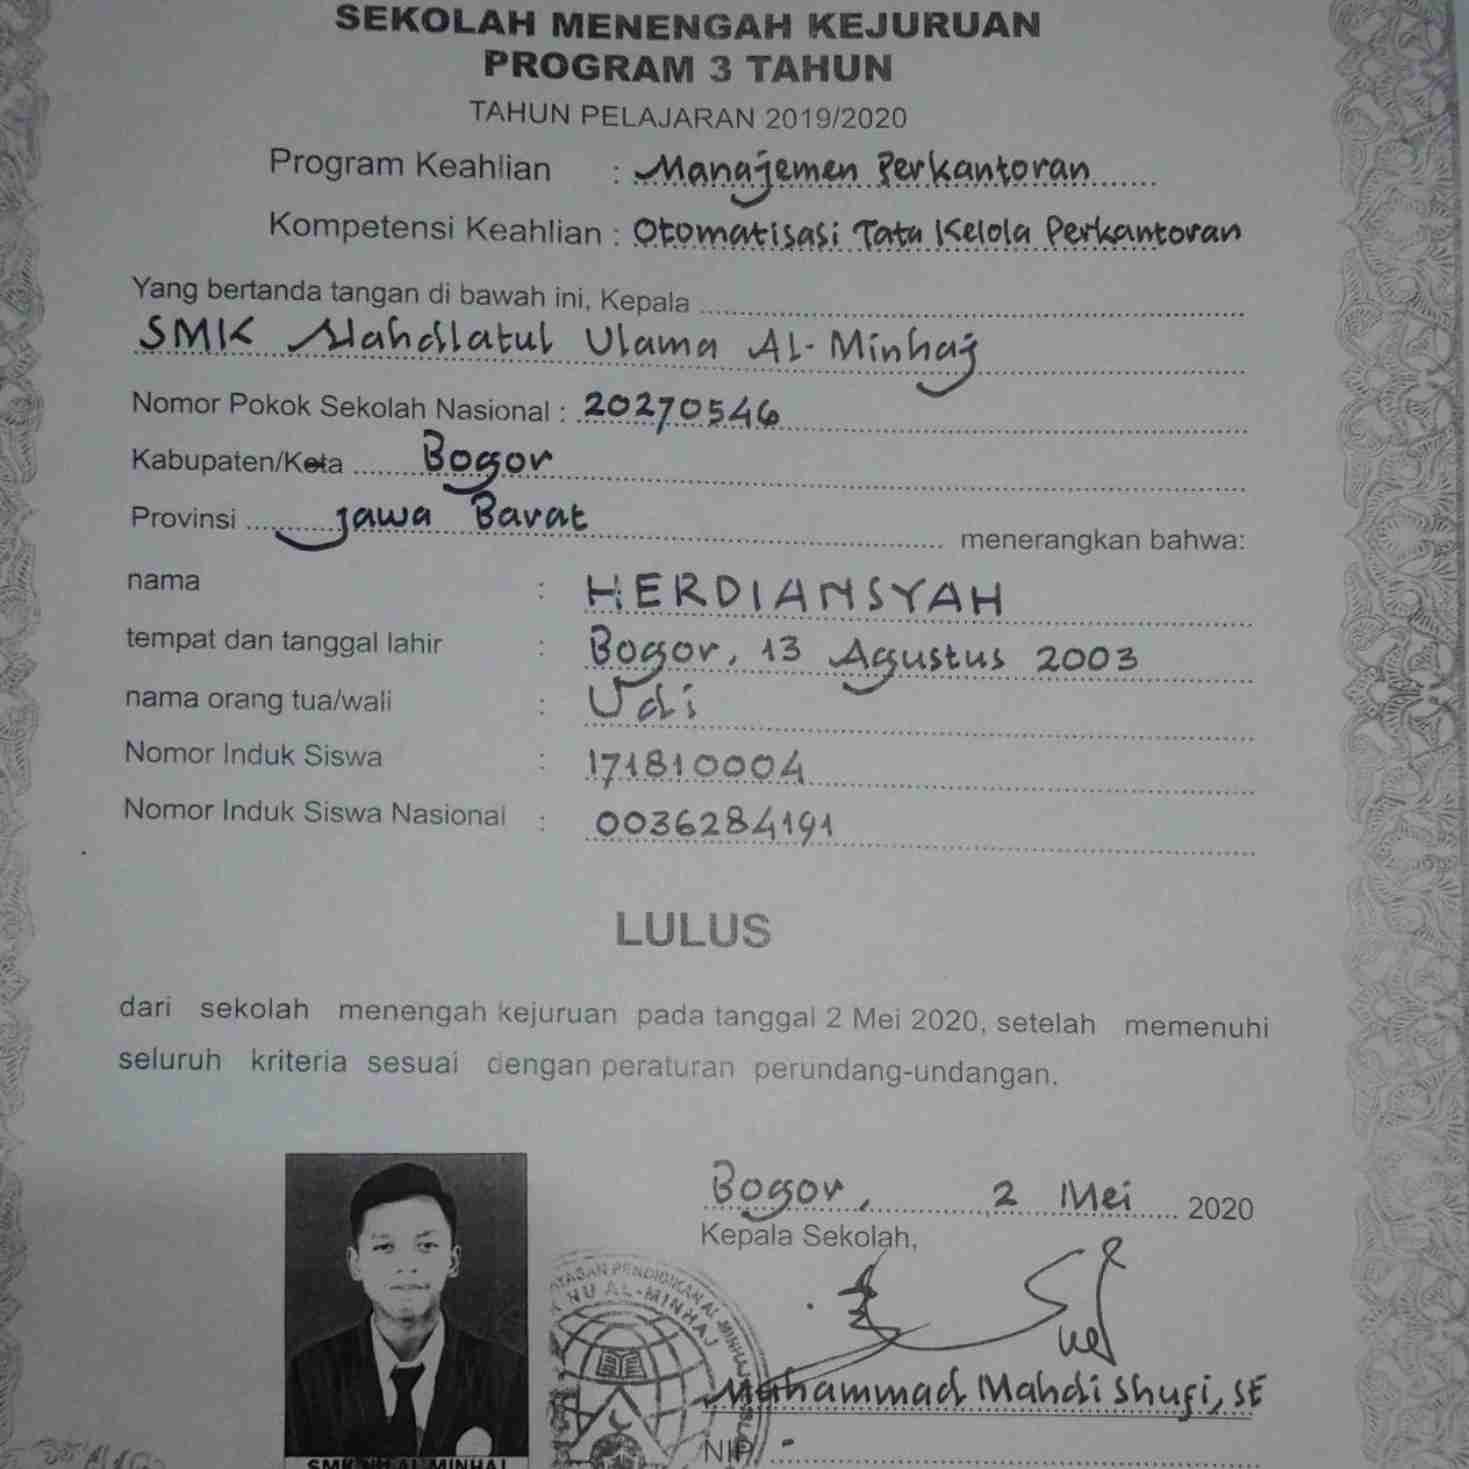 SEKOLAH MENENGAH KEJURUAN
PROGRAM 3 TAHUN
TAHUN PELAJARAN 2019/2020
Program Keahlian : Manajemen Perkantoran
Kompetensi Keahlian : Otomatisasi Tata Kelola Perkantoran
Yang bertanda tangan di bawah ini, Kepala
SMK Nahdlatul Ulama AL-Minhaj
Nomor Pokok Sekolah Nasional : 20270546
Kabupaten/Kota Bogor
Provinsi Jawa Barat menerangkan bahwa:
nama : HERDIANSYAH
tempat dan tanggal lahir : Bogor, 13 Agustus 2003
nama orang tua/wali : Udi
Nomor Induk Siswa : 171810004
Nomor Induk Siswa Nasional : 0036284191
LULUS
dari sekolah menengah kejuruan pada tanggal 2 Mei 2020, setelah memenuhi
seluruh kriteria sesuai dengan peraturan perundang-undangan.
Bogor, 2 Mei 2020
Kepala Sekolah,
YAYASAN PENDIDIKAN AL-MINHAJ
NU AL-MINHAJ
Muhammad Mahdi Shufi, SE
NIP -
SMK NU AL MINHAJ